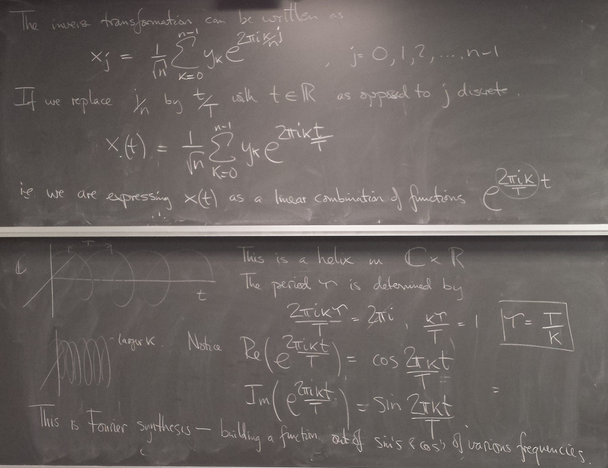 The inverse transformation can be written as
x_j = 1/√n ∑_{k=0}^{n-1} y_k e^{2πik j/n} , j = 0, 1, 2, ..., n-1
If we replace j/n by t/T with t ∈ ℝ as opposed to j discrete.
x(t) = 1/√n ∑_{k=0}^{n-1} y_k e^{2πikt/T}
ie we are expressing x(t) as a linear combination of functions e^{(2πik/T)t}
ℂ τ t
This is a helix in ℂ × ℝ
The period τ is determined by
2πikτ/T = 2πi , kτ/T = 1 τ = T/k
larger k. Notice Re(e^{2πikt/T}) = cos 2πkt/T
Im(e^{2πikt/T}) = sin 2πkt/T =
This is Fourier synthesis — building a function out of sin's & cos's of various frequencies.